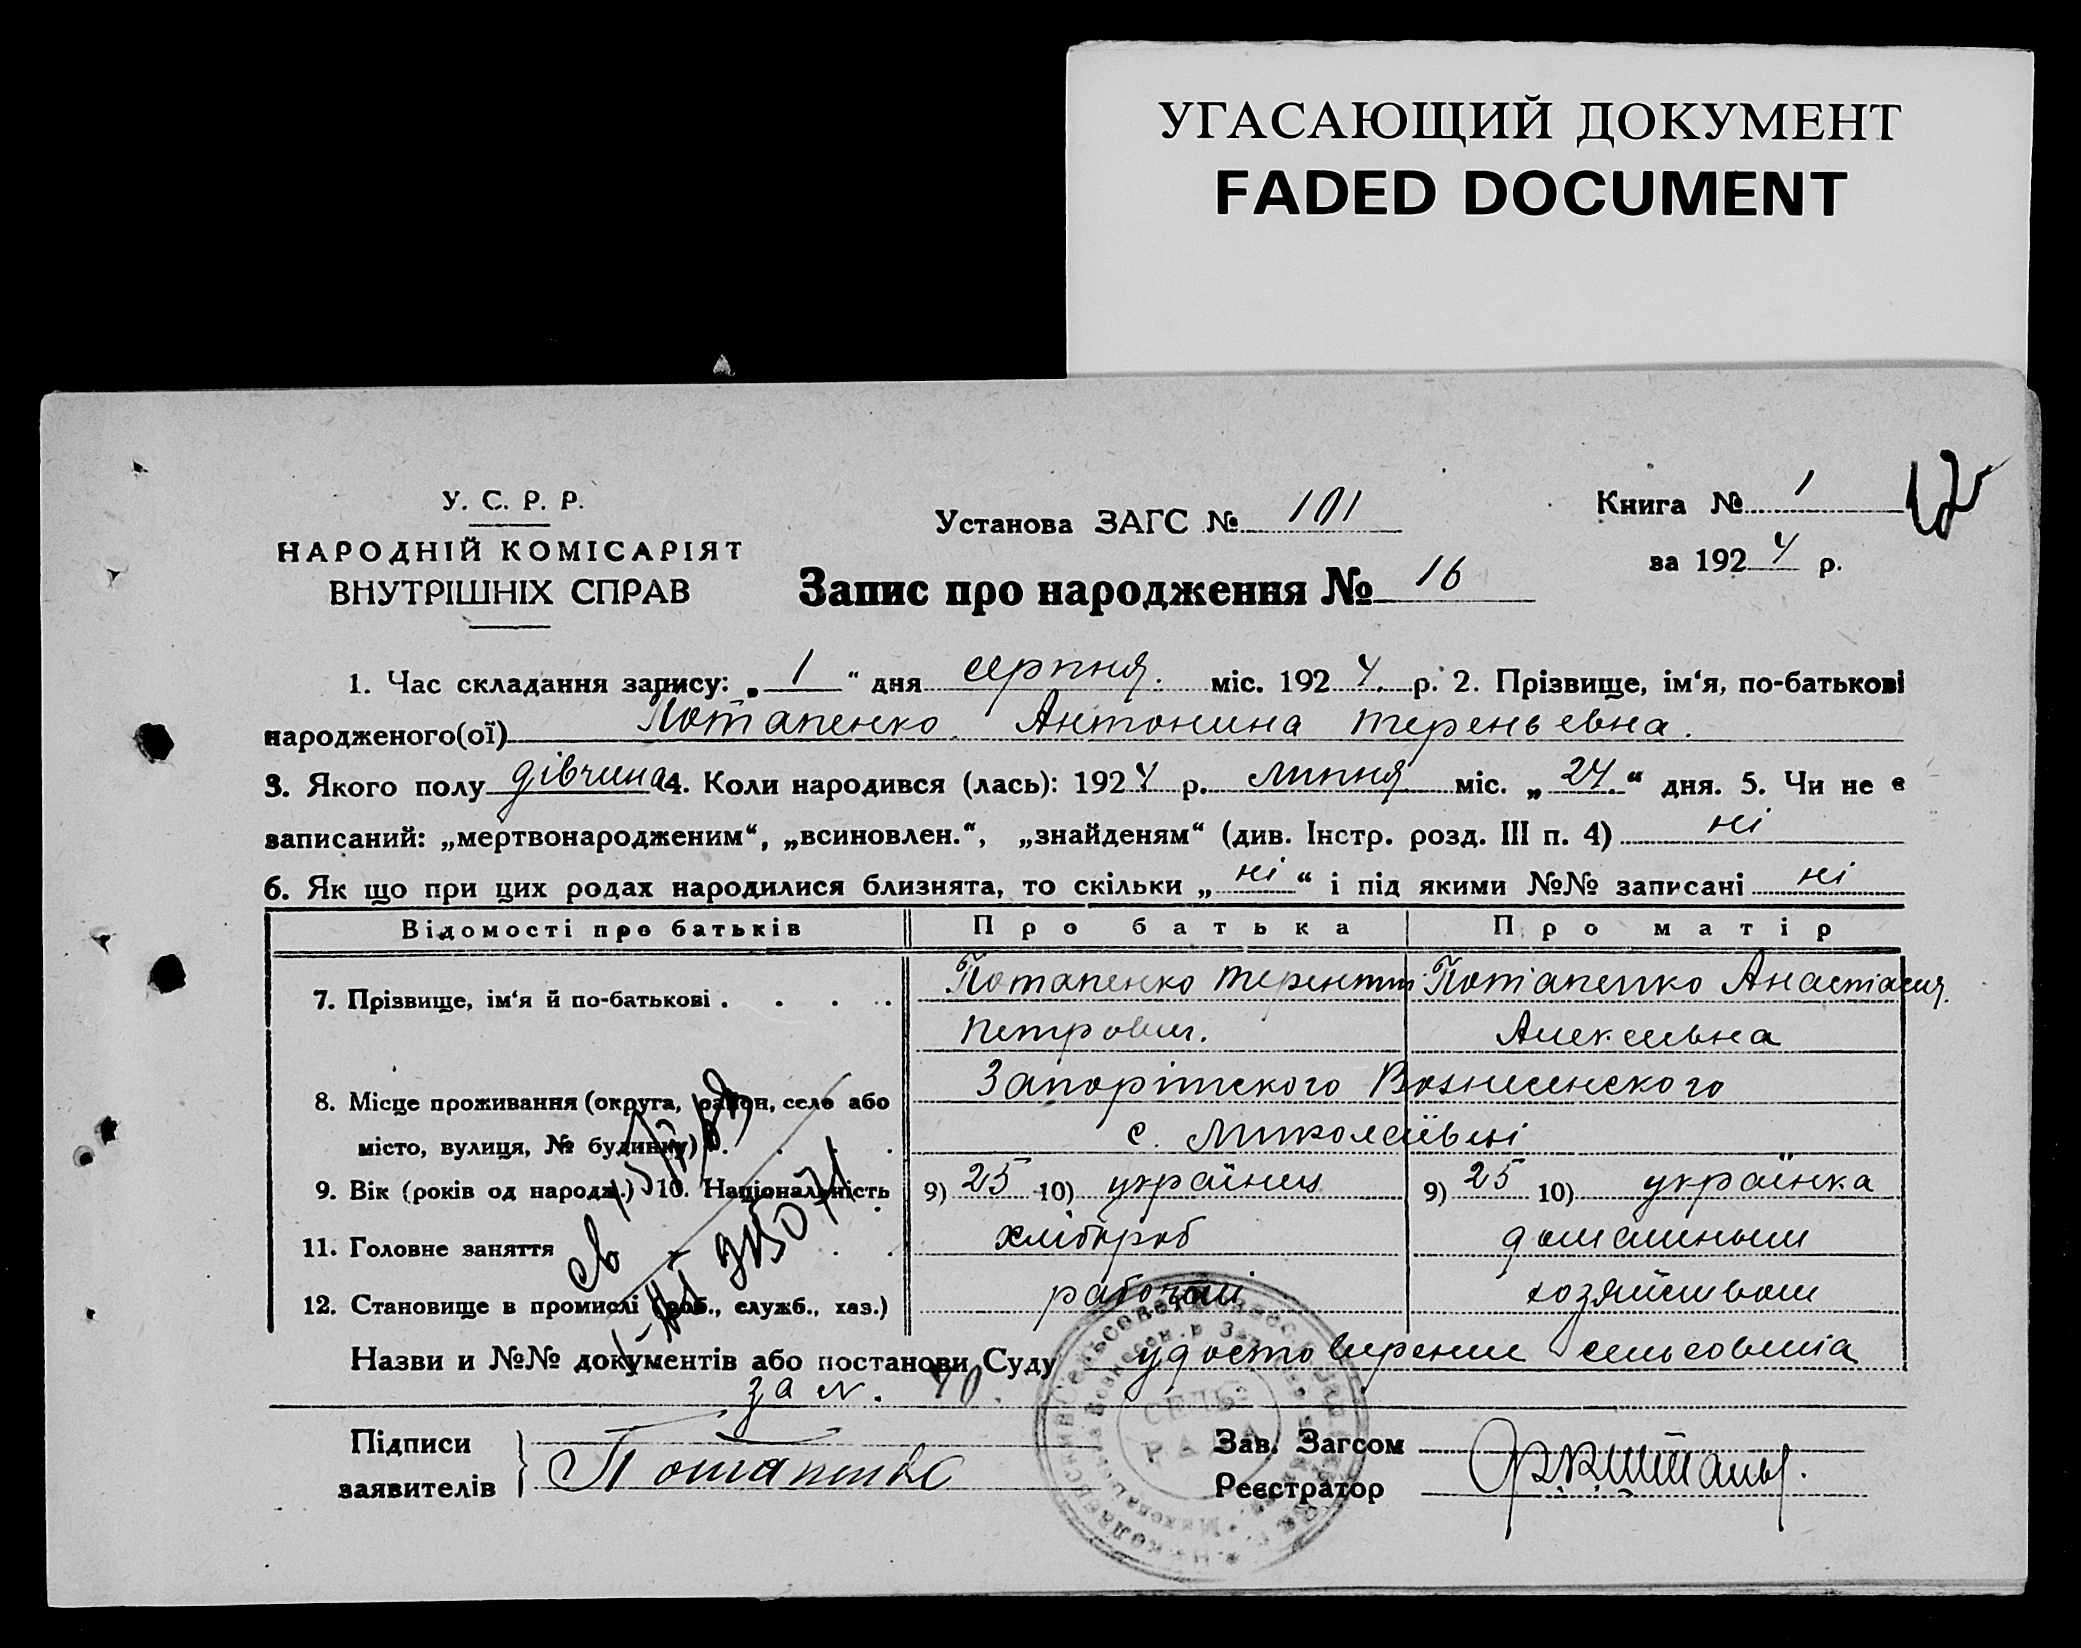 УГАСАЮЩИЙ ДОКУМЕНТ
FADED DOCUMENT
У. С. Р. Р.
НАРОДНІЙ КОМІСАРІЯТ
ВНУТРІШНІХ СПРАВ
Установа ЗАГС № 101
Книга № 1
за 1924 р.
12
Запис про народження № 16
1. Час складання запису: „ 1 “ дня серпня. міс. 1924. р. 2. Прізвище, ім‘я, по-батькові
народженого(ої) Потапенко. Антонина Тереньевна.
3. Якого полу дівчина 4. Коли народився (лась): 1924 р. липня міс. „ 24. “ дня. 5. Чи не є
записаний: „мертвонародженим“, „всиновлен.“, „знайденям“ (див. Інстр. розд. III п. 4) ні
6. Як що при цих родах народилися близнята, то скільки „ ні “ і під якими №№ записані ні
Відомості про батьків Про батька Про матір
7. Прізвище, ім‘я й по-батькові . . . . Потапенко Терентий Потапенко Анастасия
Петрович. Алексеевна
8. Місце проживання (округа, район, село або Запоріжского Вознесенского
місто, вулиця, № будинку) . . . . с. Миколаївці
9. Вік (років од народж.) 10. Національність 9) 25 10) українец 9) 25 10) українка
11. Головне заняття хлібороб домашним
12. Становище в промислі (роб., служб., хаз.) рабочий хозяйством
Назви и №№ документів або постанови Суду удостоверение сельсовета
за N. 40.
Підписи
заявителів Потапенко
Зав. Загсом
Реєстратор
СЕЛЬ
РАДА